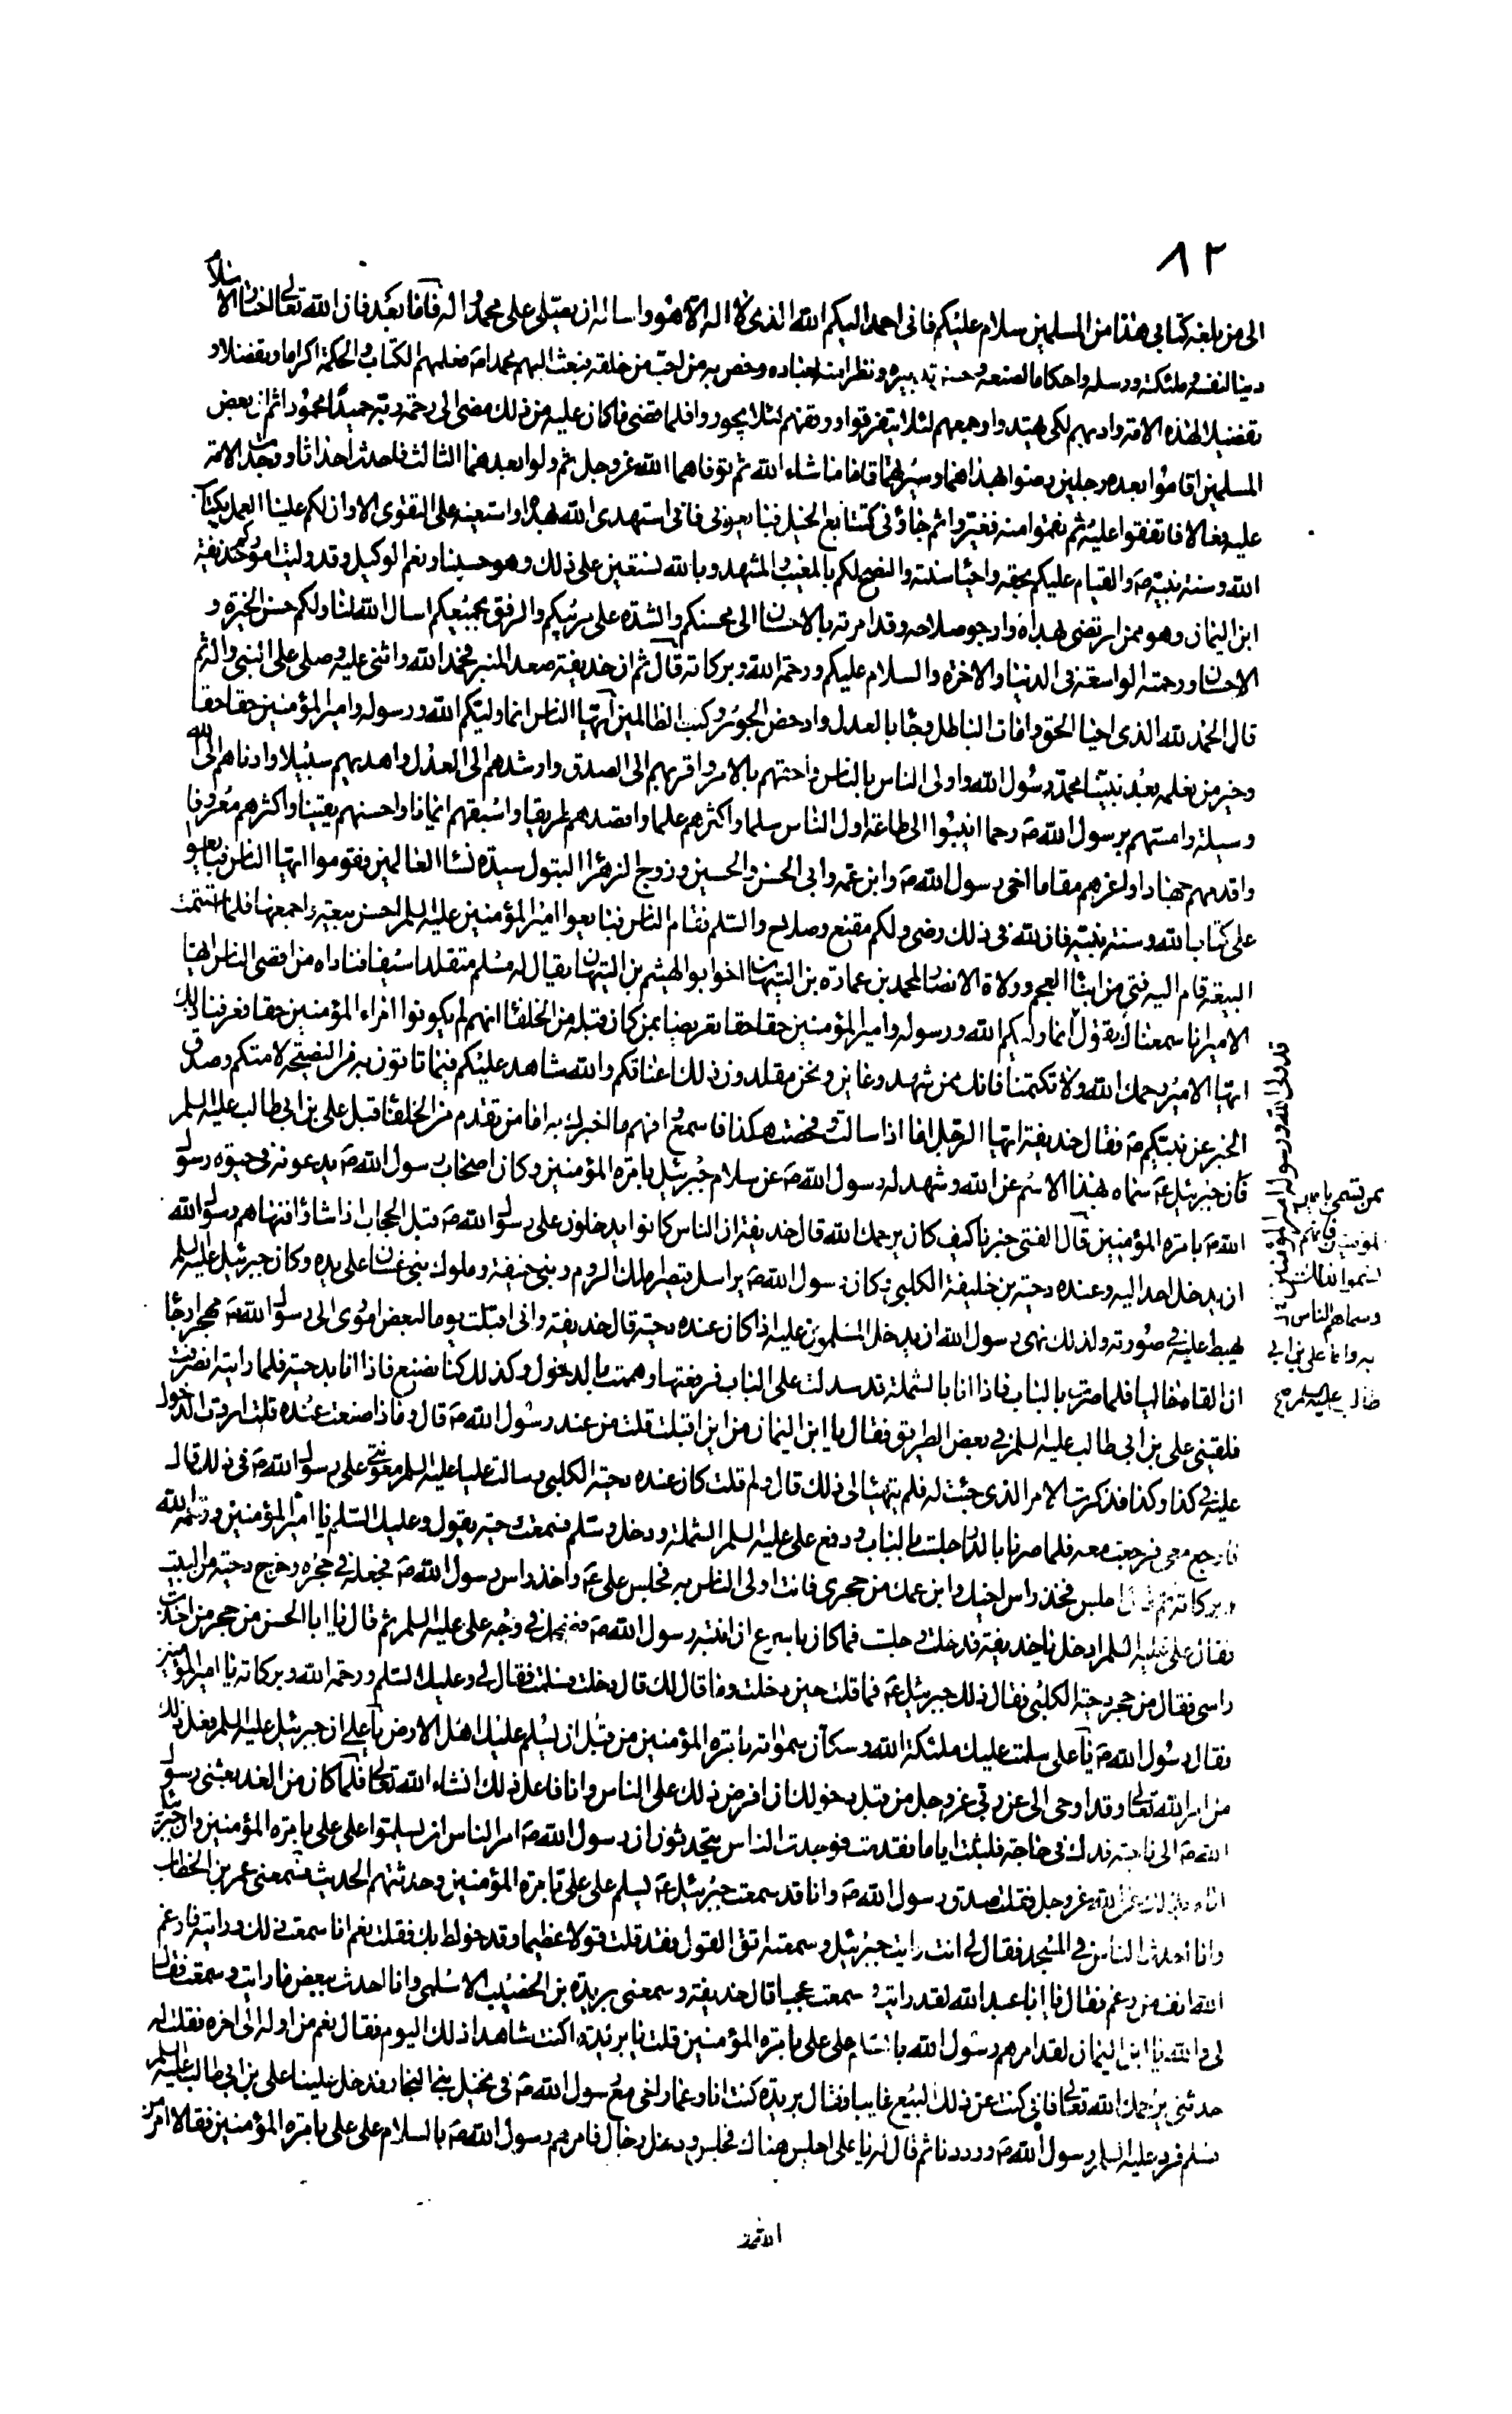 ٨٢
الى من بلغه كتابى هذا من المسلمين سلام عليكم فانى احمد اليكم الله الذى لا اله الا هو واساله ان يصلى على محمد واله فاما بعد فان الله تعالى اختار الاسلام
دينا لنفسه وملئكته ورسله واحكاما لصنعه وحسن تدبيره ونظرا منه لعباده وخص به من احب من خلقه فبعث اليهم محمدا ص فعلمهم الكتاب والحكمة اكراما وتفضلا و
تفضيلا لهذه الامة وادبهم لكى يهتدوا وجمعهم لئلا يتفرقوا ووقفهم لئلا يجوروا فلما قضى ما كان عليه من ذلك مضى الى رحمة ربه حميدا محمودا ثم ان بعض
المسلمين اقاموا بعده رجلين رضوا بهداهما وسيرتهما قاما ما شاء الله ثم توفاهما الله عز وجل ثم ولوا بعدهما الثالث فاحدث احداثا ووجدت الامة
عليه فعالا فاتفقوا عليه ثم نقموا منه فغيروا ثم جاؤنى كتتابع الخيل فبايعونى فانى استهدى الله بهداه واستعينه على التقوى الا وان لكم علينا العمل بكتاب
الله وسنة نبيه ص والقيام عليكم بحقه واحياء سنته والنصح لكم بالمغيب والمشهد وبالله نستعين على ذلك وهو حسبنا ونعم الوكيل وقد وليت اموركم حذيفة
ابن اليمان وهو ممن ارتضى بهداه وارجو صلاحه وقد امرته بالاحسان الى محسنكم والشدة على مريبكم والرفق بجميعكم اسال الله لنا ولكم حسن الخيرة و
الاحسان ورحمته الواسعة فى الدنيا والاخرة والسلام عليكم ورحمة الله وبركاته قال ثم ان حذيفة صعد المنبر فحمد الله واثنى عليه وصلى على النبى واله ثم
قال الحمد لله الذى احيا الحق وامات الباطل وجاء بالعدل وادحض الجور وكبت الظالمين ايها الناس انما وليكم الله ورسوله وامير المؤمنين حقا حقا
وخير من نعلمه بعد نبينا محمد رسول الله واولى الناس بالناس واحقهم بالامر واقربهم الى الصدق وارشدهم الى العدل واهديهم سبيلا وادناهم الى الله
وسيلة وامسهم برسول الله ص رحما انيبوا الى طاعة اول الناس سلما واكثرهم علما واقصدهم طريقا واسبقهم ايمانا واحسنهم يقينا واكثرهم معروفا
واقدمهم جهادا واعزهم مقاما اخى رسول الله ص وابن عمه وابى الحسن والحسين وزوج الزهراء البتول سيدة نساء العالمين فقوموا ايها الناس فبايعوا
على كتاب الله وسنة نبيه فان لله فى ذلك رضى ولكم مقنع وصلاح والسلم فقام الناس فبايعوا امير المؤمنين عليه السلم احسن بيعة واجمعها فلما استتمت
البيعة قام اليه فتى من ابناء العجم وولاة الانصار لمحمد بن عمارة بن التيهان اخو ابو الهيثم بن التيهان يقال له مسلم متقلدا سيفا فناداه من اقصى الناس ايها
الامير انا سمعناك تقول انما وليكم الله ورسوله وامير المؤمنين حقا حقا تعريضا بمن كان قبله من الخلفاء انهم لم يكونوا امراء المؤمنين حقا فعرفنا ذلك
ايها الامير رحمك الله ولا تكتمنا فانك ممن شهد وغاب ونحن مقلدون ذلك اعناقكم والله شاهد عليكم فيما تاتون به من النصيحة لامتكم وصدق
الخبر عن نبيكم ص فقال حذيفة ايها الرجل اما اذا سالت وفحصت هكذا فاسمع وافهم ما اخبرك به اما من تقدم من الخلفاء قبل على بن ابى طالب عليه السلم
ممن تسمى بامير
المؤمنين فانهم
تسموا بذلك
وسماهم الناس
به واما على بن ابى
طالب عليه السلم
فان جبرئيل ع سماه بهذا الاسم عن الله وشهد له رسول الله ص عن سلام جبرئيل بامرة المؤمنين وكان اصحاب رسول الله ص يدعونه فى حيوة رسول
الله ص بامرة المؤمنين قال الفتى خبرنا كيف كان يرحمك الله قال حذيفة ان الناس كانوا يدخلون على رسول الله ص قبل الحجاب اذا شاؤا فنهاهم رسول الله
ان يدخل احد اليه وعنده دحية بن خليفة الكلبى وكان رسول الله ص يراسل قيصرا ملك الروم وبنى حنيفة وملوك بنى غسان على يده وكان جبرئيل عليه السلم
يهبط عليه فى صورته ولذلك نهى رسول الله ان يدخل المسلمون عليه اذا كان عنده دحية قال حذيفة وانى اقبلت يوما لبعض امورى الى رسول الله ص مهجرا رجاء
ان القاه خاليا فلما صرت بالباب فاذا انا بالشملة قد سدلت على الباب فرفعتها وهممت بالدخول وكذلك كنا نصنع فاذا انا بدحية فلما رايته انصرفت
فلقينى على بن ابى طالب عليه السلم فى بعض الطريق فقال يا ابن اليمان من اين اقبلت قلت من عند رسول الله ص قال وماذا صنعت عنده قلت اردت الدخول
عليه فى كذا وكذا فذكرت الامر الذى جئت له فلم يتهيئا لى ذلك قال ولم قلت كان عنده دحية الكلبى وسالت عليا عليه السلم معونتى على رسول الله ص فى ذلك قال
فارجع معى فرجعت معه فلما صرنا بالدار جلست بالباب ورفع على عليه السلم الشملة ودخل وسلم فسمعت دحية يقول وعليك السلم يا امير المؤمنين ورحمة الله
وبركاته ثم قال اجلس فخذ راس اخيك وابن عمك من حجرى فانت اولى الناس به فجلس على ع واخذ راس رسول الله ص فجعله فى حجره وخرج دحية من البيت
فقال على عليه السلم ادخل يا حذيفة فدخلت وجلست فما كان باسرع ان انتبه رسول الله ص فضحك فى وجه على عليه السلم ثم قال يا ابا الحسن من حجر من اخذت
راسى فقال من حجر دحية الكلبى فقال ذلك جبرئيل ع فما قلت حين دخلت وما قال لك قال دخلت فسلمت فقال لى وعليك السلم ورحمة الله وبركاته يا امير المؤمنين
فقال رسول الله ص يا على سلمت عليك ملئكة الله وسكان سمواته بامرة المؤمنين من قبل ان يسلم عليك اهل الارض يا على ان جبرئيل عليه السلم فعل ذلك
من امر الله تعالى وقد اوحى الى عن ربى عز وجل من قبل دخولك ان افرض ذلك على الناس وانا فاعل ذلك انشاء الله تعالى فلما كان من الغد بعثنى رسول
الله ص الى ناحية فدك فى حاجة فلبثت اياما فقدمت فوجدت الناس يتحدثون ان رسول الله ص امر الناس ان يسلموا على على بامرة المؤمنين وان جبرئيل
اتاه بذلك عن الله عز وجل فقلت صدق رسول الله ص وانا قد سمعت جبرئيل ع يسلم على على بامرة المؤمنين وحدثتهم الحديث فسمعنى عمر بن الخطاب
وانا احدث الناس فى المسجد فقال لى انت رايت جبرئيل وسمعته اتق القول فقد قلت قولا عظيما وقد خولط بك فقلت نعم انا سمعت ذلك ورايته فارغم
الله انف من رغم فقال يا ابا عبد الله لقد رايت وسمعت عجبا قال حذيفة وسمعنى بريدة بن الحصيب الاسلمى وانا احدث ببعض ما رايت وسمعت فقال
لى والله يا ابن اليمان لقد امرهم رسول الله بالسلام على على بامرة المؤمنين قلت يا بريدة اكنت شاهدا ذلك اليوم فقال نعم من اوله الى اخره فقلت له
حدثنى يرحمك الله تعالى فانى كنت عن ذلك اليوم غايبا فقال بريدة كنت انا وعمار اخى مع رسول الله ص فى نخيل بنى النجار فدخل علينا على بن ابى طالب عليه السلم
فسلم فرد عليه السلم رسول الله ص ورددنا ثم قال له يا على اجلس هناك فجلس ودخل رجال فامرهم رسول الله ص بالسلام على على بامرة المؤمنين فقالا امر من